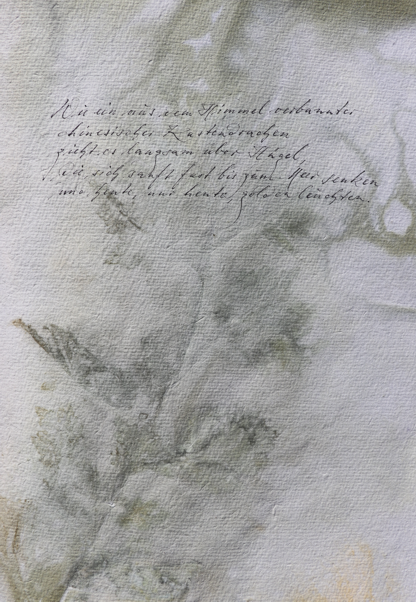 Wie ein aus dem Himmel verbannter
chinesischer Kastendrachen
zieht es langsam über Hügel,
die sich sanft fast bis zum Meer senken
und heute, nur heute, golden leuchten.